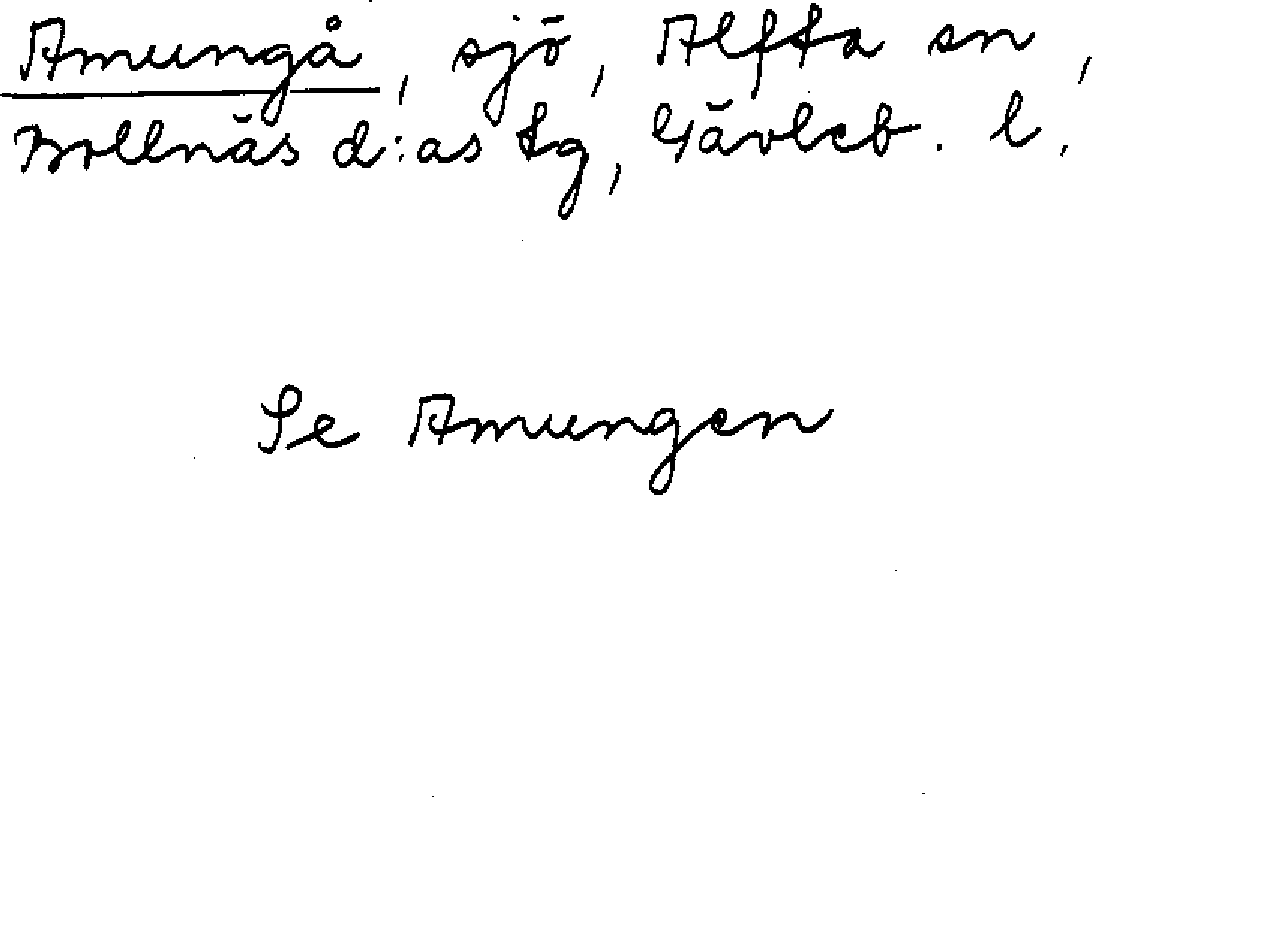 Amungå, sjö, Alfta sn,
Bollnäs d:as tg, Gävleb. l.
Se Amungen